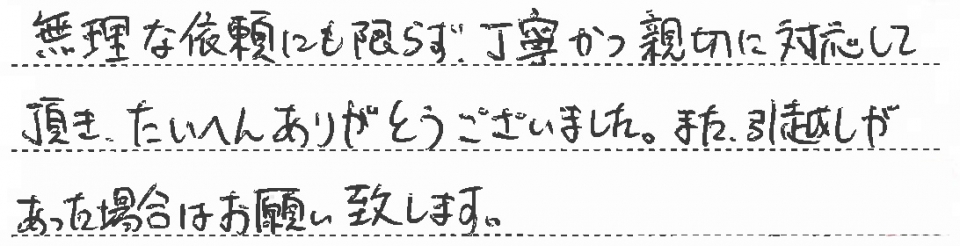 無理な依頼にも限らず、丁寧かつ親切に対応して
頂き、たいへんありがとうございました。また、引越しが
あった場合はお願い致します。